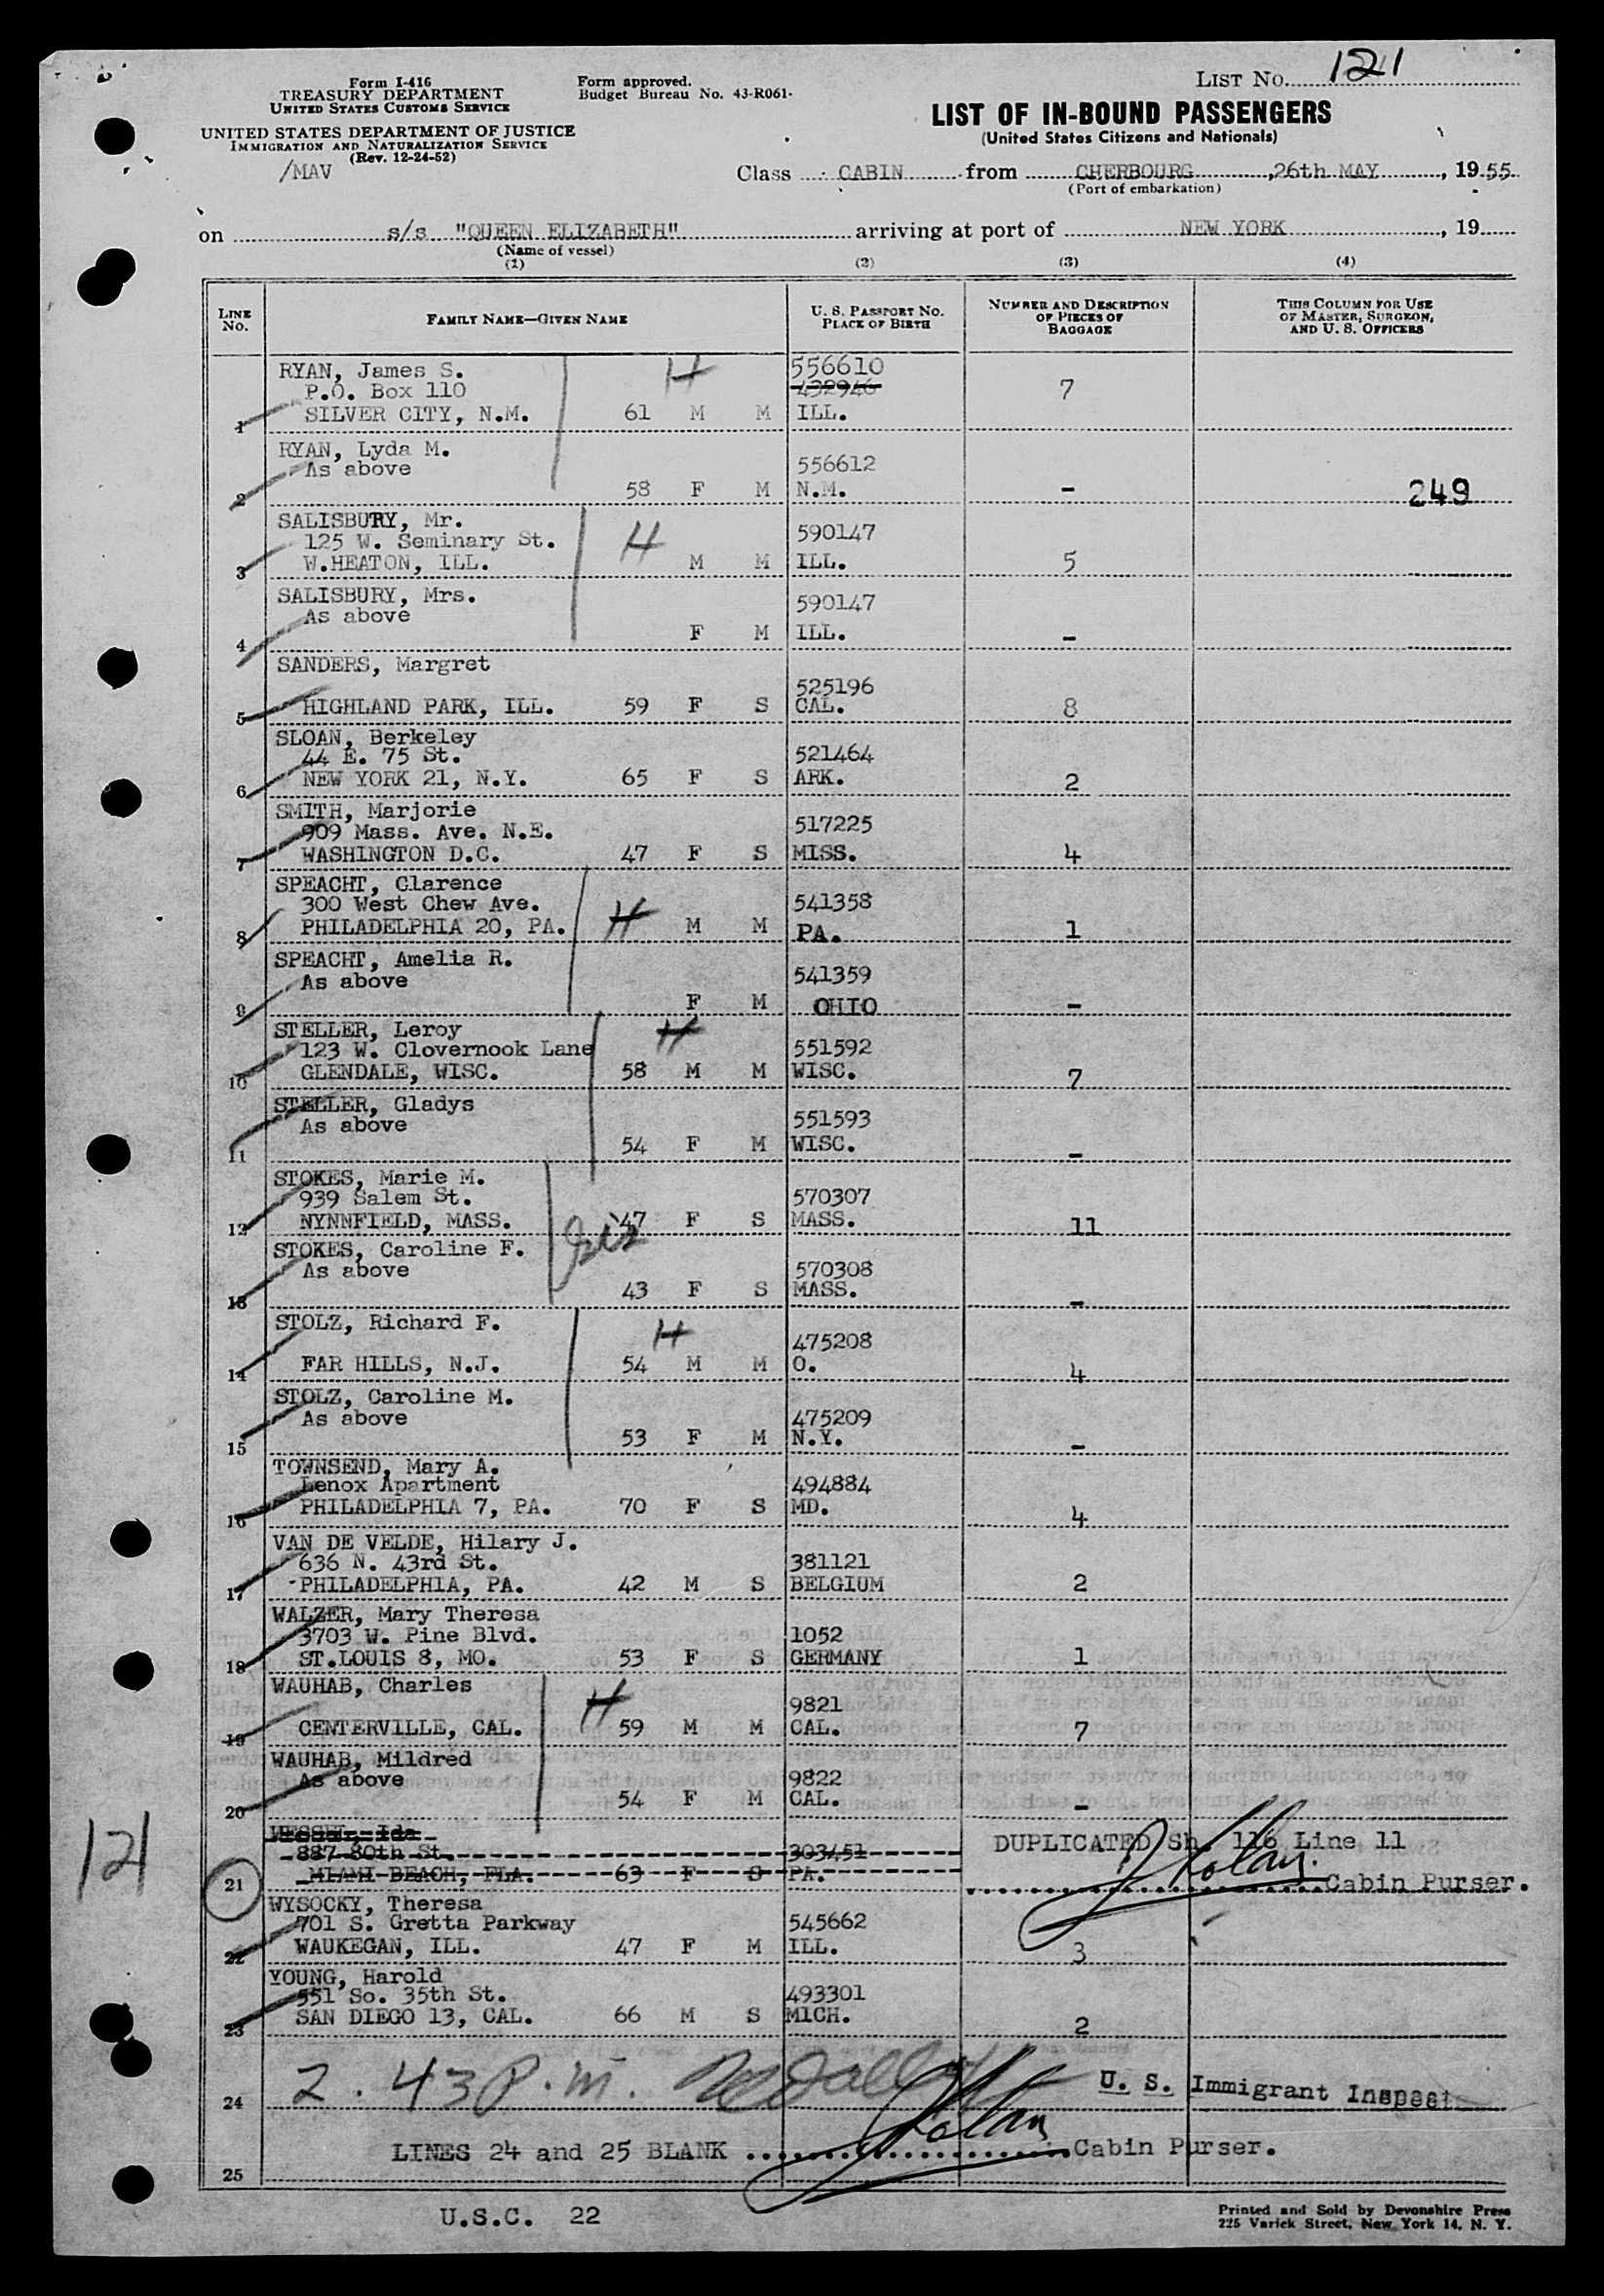 Form I-416
TREASURY DEPARTMENT
UNITED STATES CUSTOMS SERVICE
UNITED STATES DEPARTMENT OF JUSTICE
IMMIGRATION AND NATURALIZATION SERVICE
(Rev. 12-24-52)
/MAV
Form approved.
Budget Bureau No. 43-R061-
LIST NO. 121
LIST OF IN-BOUND PASSENGERS
(United States Citizens and Nationals)
Class CABIN from CHERBOURG, 26th MAY, 1955
(Port of embarkation)
on s/s "QUEEN ELIZABETH" arriving at port of NEW YORK, 19
(Name of vessel)
(1) (2) (3) (4)
LINE NO. FAMILY NAME—GIVEN NAME U. S. PASSPORT NO. PLACE OF BIRTH NUMBER AND DESCRIPTION OF PIECES OF BAGGAGE THIS COLUMN FOR USE OF MASTER, SURGEON, AND U. S. OFFICERS
RYAN, James S. H 556610
P.O. Box 110 432946 7
1 SILVER CITY, N.M. 61 M M ILL.
RYAN, Lyda M.
As above 556612
2 58 F M N.M. - 249
SALISBURY, Mr.
125 W. Seminary St. H 590147
3 W.HEATON, ILL. M M ILL. 5
SALISBURY, Mrs. 590147
As above
4 F M ILL. -
SANDERS, Margret
525196
5 HIGHLAND PARK, ILL. 59 F S CAL. 8
SLOAN, Berkeley
44 E. 75 St. 521464
6 NEW YORK 21, N.Y. 65 F S ARK. 2
SMITH, Marjorie
909 Mass. Ave. N.E. 517225
7 WASHINGTON D.C. 47 F S MISS. 4
SPEACHT, Clarence
300 West Chew Ave. 541358
8 PHILADELPHIA 20, PA. H M M PA. 1
SPEACHT, Amelia R.
As above 541359
9 F M OHIO -
STELLER, Leroy H
123 W. Clovernook Lane 551592
10 GLENDALE, WISC. 58 M M WISC. 7
STELLER, Gladys
As above 551593
11 54 F M WISC. -
STOKES, Marie M.
939 Salem St. 570307
12 NYNNFIELD, MASS. 47 F S MASS. 11
STOKES, Caroline F.
As above 570308
13 43 F S MASS. -
STOLZ, Richard F. H
475208
14 FAR HILLS, N.J. 54 M M O. 4
STOLZ, Caroline M.
As above 475209
15 53 F M N.Y. -
TOWNSEND, Mary A.
Lenox Apartment 494884
16 PHILADELPHIA 7, PA. 70 F S MD. 4
VAN DE VELDE, Hilary J.
636 N. 43rd St. 381121
17 PHILADELPHIA, PA. 42 M S BELGIUM 2
WALZER, Mary Theresa
3703 W. Pine Blvd. 1052
18 ST.LOUIS 8, MO. 53 F S GERMANY 1
WAUHAB, Charles H
9821
19 CENTERVILLE, CAL. 59 M M CAL. 7
WAUHAB, Mildred
As above 9822
20 54 F M CAL. -
WESSEL, Ida DUPLICATED Sh. 116 Line 11
887 80th St. 303451
21 MIAMI BEACH, FLA. 63 F S PA. Cabin Purser.
121
WYSOCKY, Theresa
701 S. Gretta Parkway 545662
22 WAUKEGAN, ILL. 47 F M ILL. 3
YOUNG, Harold
551 So. 35th St. 493301
23 SAN DIEGO 13, CAL. 66 M S MICH. 2
24 2.43 P.m. U. S. Immigrant Inspect
LINES 24 and 25 BLANK Cabin Purser.
25
U.S.C. 22
Printed and Sold by Devonshire Press
225 Varick Street, New York 14, N. Y.